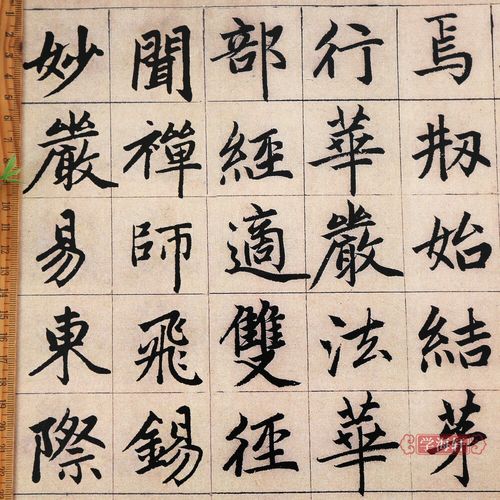 焉刱始結茅
行華嚴法華
部經適雙徑
聞禪師飛錫
妙嚴易東際
学海轩